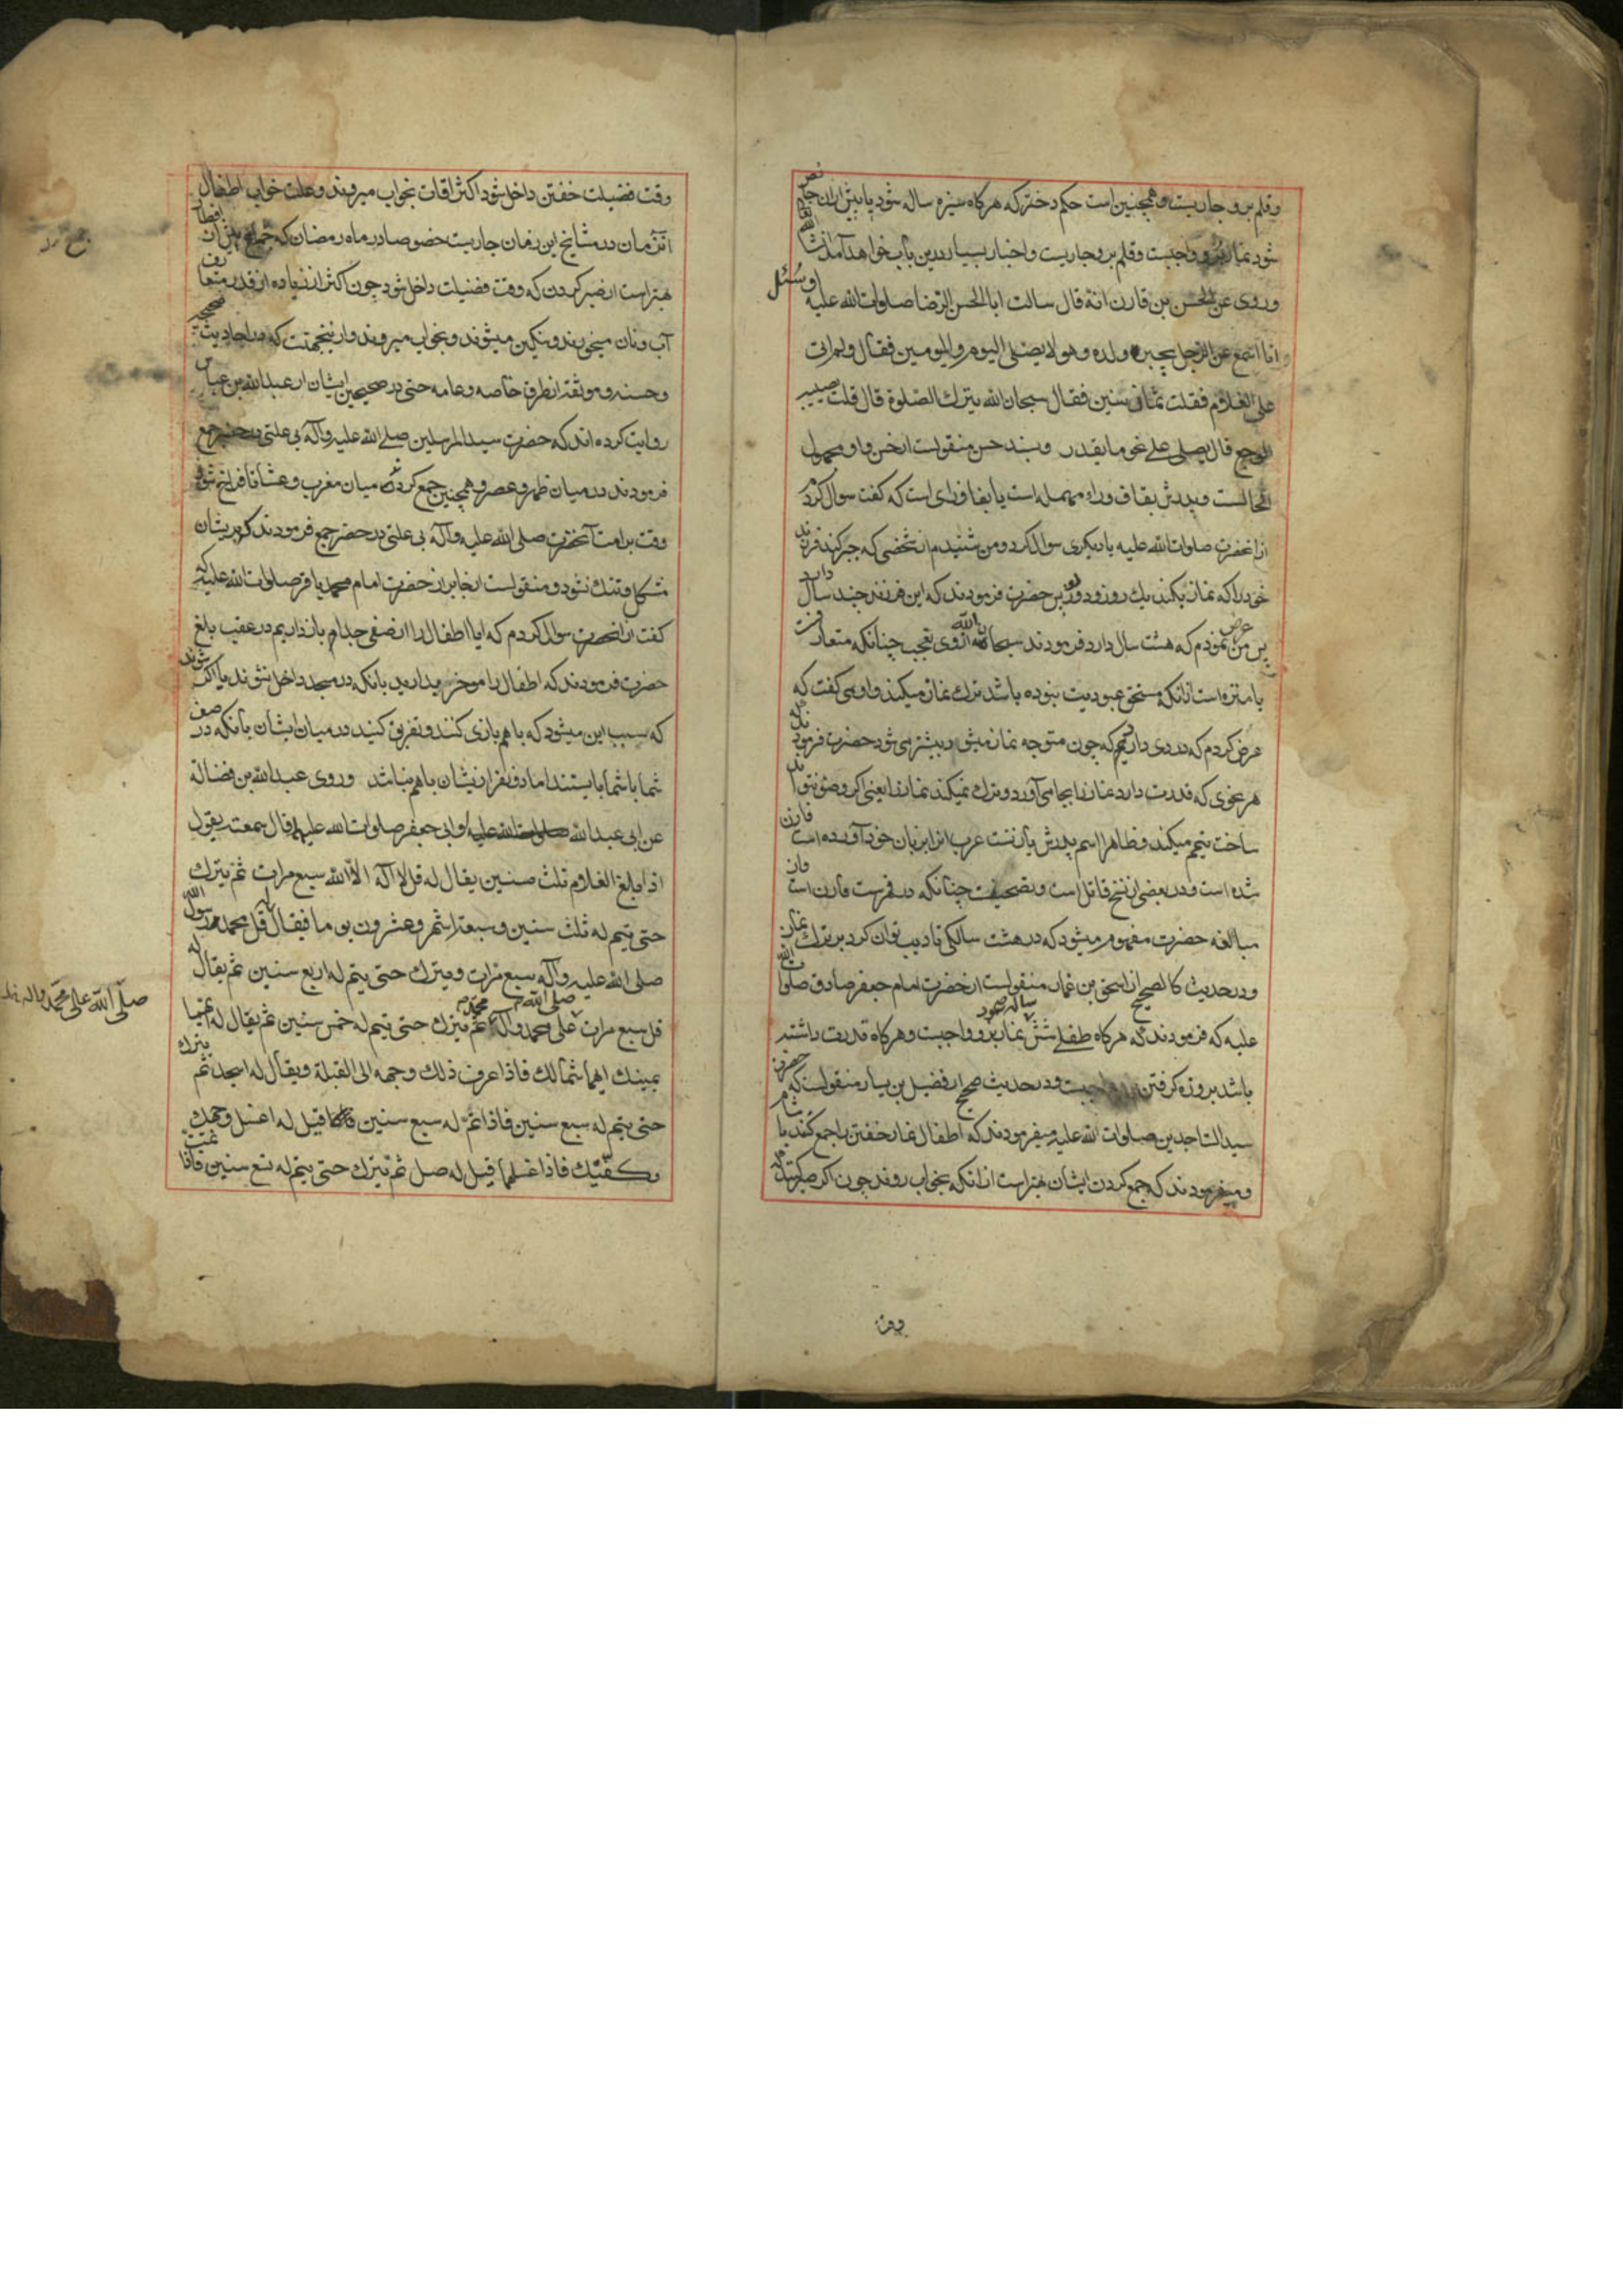 وقلم برو جاریست و همچنین است حکم دختر که هرکاه سیزده ساله شود یا پیش ازان حایض
شود نماز برو واجبست وقلم برو جاریست واخبار بسیار درین باب خواهد آمد انشاء الله تعالی
وروی عن الحسن بن قارن انه قال سالت ابا الحسن الرضا صلوات الله علیه اوسئل
وانا اسمع عن الرجل یجبر ولده وهو لا یصلی الیوم والیومین فقال وکم اتی
علی الغلام فقلت ثمانی سنین فقال سبحان الله یترک الصلوة قال قلت یصیبه
الوجع قال یصلی علی نحو ما یقدر وبسند حسن منقولست از حسن واو مجهول
الحالست وپدرش بقاف وراء مهمله است یا بفا وزای است که کفت سوال کردم
ازانحضرت صلوات الله علیه یا دیکری سوال کرد ومن شنیدم از شخصی که جبر کند فرزند
خود را که نماز بکند یک روز ودو روز پس حضرت فرمودند که این فرزند چند سال دارد
پس من عرض نمودم که هشت سال دارد فرمودند سبحان الله از روی تعجب چنانکه متعارفست
یا منزه است ازانکه مستحق عبودیت بنوده باشد ترک نماز میکند واوی کفت که
عرض کردم که دردی دارد که چون متوجه نماز میشود بیشتر می شود حضرت فرمودند که
هر نحوی که قدرت دارد نماز را بجا می آورد وترک نمیکند نماز را یعنی اکر وضو نتواند
ساخت تیمم میکند وظاهرا اسم پدرش یازنست عرب انرا بزبان خود آورده است قارن
شده است ودر بعضی از نسخ قاتل است وتصحیفست چنانکه در فهرست قارن است واز
مبالغه حضرت مفهوم میشود که در هشت سالکی تادیب توان کرد بر ترک نماز
ودر حدیث کالصحیح از اسحق بن عمار منقولست از حضرت امام جعفر صادق صلوات الله
علیه که فرمودند که هرکاه طفلی شش ساله شود نماز برو واجبست وهرکاه قدرت داشته
باشد بروزه کرفتن واجبست ودر حدیث صحیح از فضیل بن یسار منقولست که حضرت
سید الساجدین صلوات الله علیه میفرمودند که اطفال نماز خفتن را جمع کنند با شام
ومیفرمودند که جمع کردن ایشان بهتر است ازانکه بخواب روند چون اکر صبر کنند که
وقت
وقت فضیلت خفتن داخل شود اکثر اوقات بخواب میروند وعلت خواب اطفال
انزمان در مشایخ این زمان جاریست خصوصا در ماه رمضان که جمع بین ان افطار
بهتر است از صبر کردن که وقت فضیلت داخل شود چون اکثر از زیاده از قدر متعارف
آب ونان میخورند وسنکین میشوند وبخواب میروند وازینجهتست که در احادیث صحیحه
وحسنه وموثقه از طرق خاصه وعامه حتی در صحیحین ایشان از عبد الله بن عباس
روایت کرده اند که حضرت سید المرسلین صلی الله علیه وآله بی علتی در حضر جمع
فرمودند در میان ظهر وعصر وهمچنین جمع کردند میان مغرب وعشا تا فراخ شود
وقت بر امت آنحضرت صلی الله علیه وآله بی علتی در حضر جمع فرمودند که بر یشان
مشکل وتنک نشود ومنقولست از جابر از حضرت امام محمد باقر صلوات الله علیه که
کفت ازانحضرت سوال کردم که ایا اطفال را از صف جدا بازداریم در عقب بلغ
حضرت فرمودند که اطفال را موخر مدارید بانکه در مسجد داخل نشوند یا آکر شوند
که سبب این میشود که باهم بازی کنند وتفریق کنید در میان ایشان بآنکه در صف
شما با شما بایستند اما دو نفر ازیشان باهم نباشد وروی عبد الله بن فضاله
عن ابی عبد الله وابی جعفر صلوات الله علیهما قال سمعته یقول
اذا بلغ الغلام ثلث سنین یقال له قل لا آله الا الله سبع مرات ثم یترک
حتی یتم له ثلث سنین وسبعة اشهر وعشرون یوما فیقال له قل محمد رسول الله
صلی الله علیه وآله سبع مرات ویترک حتی یتم له اربع سنین ثم یقال له
قل سبع مرات صلی الله علی محمد وآله ثم یترک حتی یتم له خمس سنین ثم یقال له ایهما
یمینک ایهما شمالک فاذا عرف ذلک وجهه الی القبلة ویقال له اسجد ثم یترک
حتی یتم له سبع سنین فاذا تم له سبع سنین قیل له اغسل وجهک
وکفیک فاذا غسلهما قیل له صل ثم یترک حتی یتم له تسع سنین فاذا تمت
صلی الله علی محمد واله